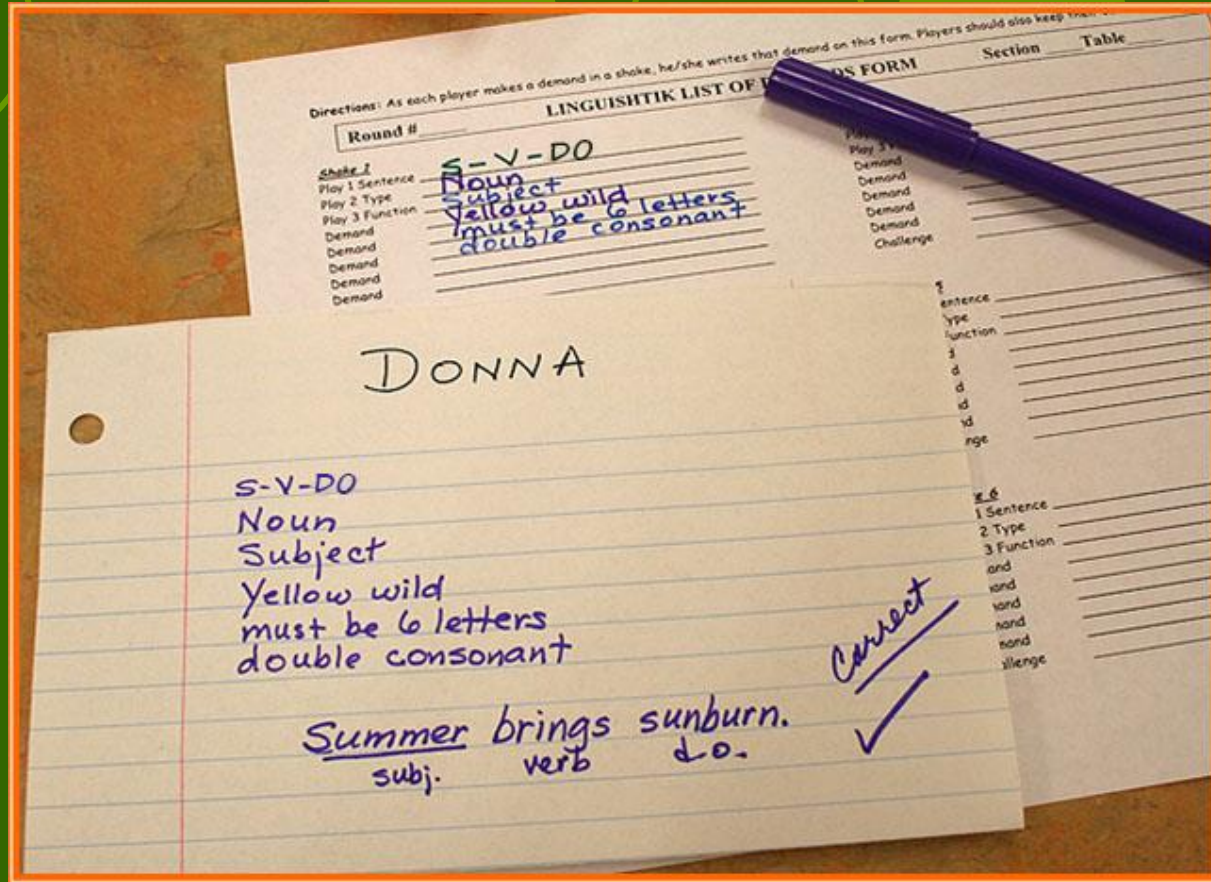 Directions: As each player makes a demand in a shake, he/she writes that demand on this form. Players should also keep
LINGUISHTIK LIST OF FORM
Section Table
Round #
Shake 1
Play 1 Sentence S-V-DO
Play 2 Type Noun
Play 3 Function Subject
Demand Yellow wild
Demand must be 6 letters
Demand double consonant
Demand
Demand
Play 3
Demand
Demand
Demand
Demand
Demand
Challenge
Sentence
6
1 Sentence
2 Type
3 Function
DONNA
S-V-DO
Noun
Subject
Yellow wild
must be 6 letters
double consonant
Summer brings sunburn.
subj. verb d.o.
Correct